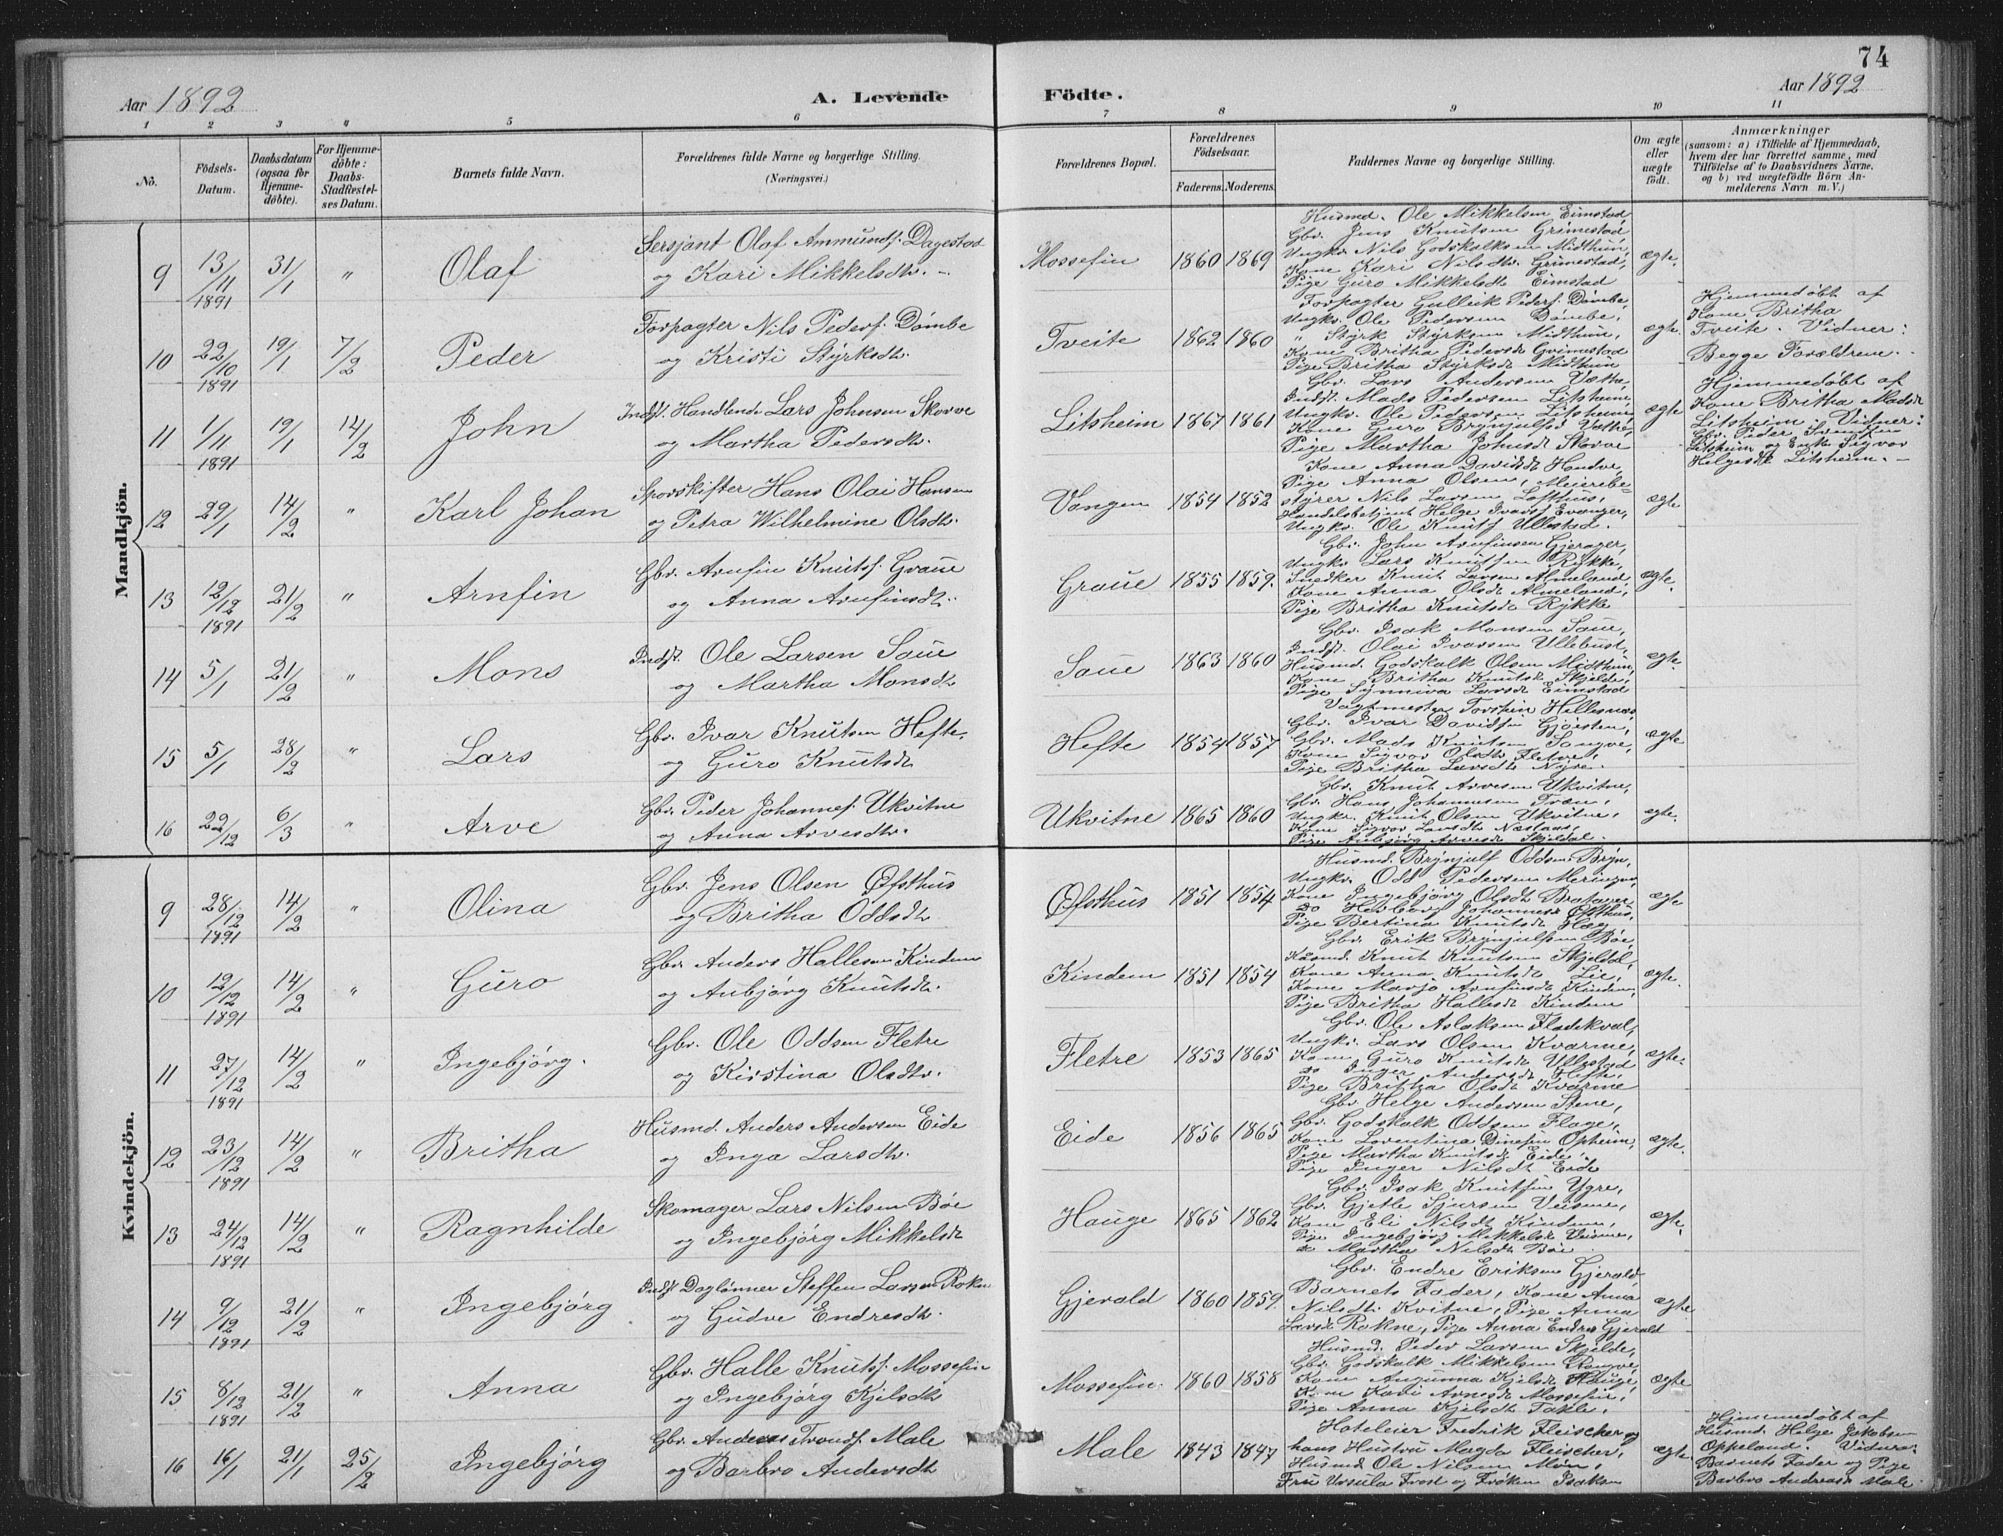 74
Aar 1892
A. Levende
Födte.
Aar 1892
1 2 3 4 5 6 7 8 9 10 11
No.
Födsels-Datum.
Daabsdatum (ogsaa for Hjemmedöbte).
For Hjemmedöbte: Daabs-Stadfæstelses Datum.
Barnets fulde Navn.
Forældrenes fulde Navne og borgerlige Stilling.
(Næringsvei.)
Forældrenes Bopæl.
Forældrenes Födselsaar.
Faderens. Moderens.
Faddernes Navne og borgerlige Stilling.
Om ægte eller uægte födt.
Anmærkninger
(saasom: a) i Tilfælde af Hjemmedaab, hvem der har forrettet samme, med Tilföielse af to Daabsvidners Navne, og b) ved uægtefödte Börn Anmelderens Navn m. V.)
Mandkjön.
9 13/11 1891 31/1 " Olaf
Sersjant Olaf Ammundf. Dagestad
og Kari Mikkelsdtr. -
Mossefin 1860 1869
Husmd. Ole Mikkelsen Eimstad
Gbr. Jens Knutsen Grimestad
Ungkr. Nils Godskalksen Midthun,
Kone Kari Nilsdtr. Grimestad,
Pige Guro Mikkelsdt Eimstad
ægte.
10 22/10 1891 19/1 7/2 Peder
Forpagter Nils Pederf. Dömbe
og Kristi Styrksdtr.
Tveite 1862 1860
Forpagter Gulleik Pederf. Dömbe,
Ungkr. Ole Pedersen Dömbe,
" Styrk Styrksen Midthun,
Kone Britha Pedersdt Grimestad
Pige Britha Styrksdt Midthun
ægte.
Hjemmedöbt af
Kone Britha
Tveite. Vidner:
Begge Forældrene.
11 1/11 1891 19/1 14/2 John
Indst. Handlende Lars Johnsen Skorve
og Martha Pedersdtr.
Litsheim 1867 1861
Gbr. Lars Andersen Vætha,
Indst. Mads Pedersen Litsheim,
Ungkr. Ole Pedersen Litsheim
Kone Guro Brynjulfsd
Pige Martha Johnsdt Skorve
ægte
Hjemmedöbt af
Kone Britha Madsdt
Litsheim. Vidner:
Gbr. Peder
Litsheim og Enke Sigvor
Helgesdt Litsheim. -
12 29/1 14/2 " Karl Johan
Sporskifter Hans Olai Hansen
og Petra Wilhelmine Olsdtr.
Vangen 1854 1852
Kone Anna Davidsdt Hondve,
Pige Anna Olsen, Meieribe-
styrer Nils Larsen Lofthus,
Handelsbetjent Helge Ivarsf Evanger,
Ungkr. Ole Knutsf Ullestad.
ægte
13 12/12 1891 21/2 " Arnfin
Gbr. Arnfin Knutsf. Graue
og Anna Arnfinsdt.
Graue 1855 1859.
Gbr. John Arnfinsen Gjerager,
Ungkr. Lars Knutsen Rykke,
Snedker Knut Larsen Almeland,
Kone Anna Olsdt Almeland,
Pige Britha Knutsdt Rykke
ægte.
14 5/1 21/2 " Mons
Indst. Ole Larsen Saue
og Martha Monsdt
Saue 1863 1860
Gbr. Isak Monsen Saue,
Indst. Olai Ivarsen Ullebust,
Husmd. Godskalk Olsen Midthun,
Kone Britha Knutsdt Skjelde,
Pige Synneva Larsdt Eimstad
ægte.
15 5/1 28/2 " Lars
Gbr. Ivar Knutsen Hefte,
og Guro Knutsdt
Hefte 1854 1857
Vagtmester Torstein Hellesnæs,
Gbr. Ivar Davidsen Gjösten,
Gbr. Mads Knutsen Songve,
Kone Sigvor Olsdtr Fletre,
Pige Britha Larsdtr Nyre.
ægte
16 22/12 6/3 " Arve
Gbr. Peder Johannesf. Ukvitne
og Anna Arvesdtr.
Ukvitne 1865 1860
Gbr. Knut Arvesen Ukvitne,
Gbr. Hans Johannesen Træn,
Ungkr. Knut Olsen Ukvitne,
Kone Sigvor Larsdtr
Pige Aubjörg Arvesdt Skjeldal.
ægte.
Kvindekjön.
9 28/12 1891 14/2 " Olina
Gbr. Jens Olsen Øfsthus
og Britha Oddsdtr
Øfsthus 1851 1854
Husmd. Brynjulf Oddsen Bryn,
Ungkr. Odd Pedersen
Kone Ingebjörg Olsdt
do Johannesdt Øfsthus,
Pige Bertina Knutsdt Hæg
ægte
10 12/12 1891 14/2 " Guro
Gbr Anders Hallesen Kindem
og Aubjörg Knutsdt.
Kindem 1851 1854
Gbr. Erik Brynjulfsen Böe,
Husmd. Knut Knutsen Skjeldal,
Kone Anna Knutsdt Lie,
Kone Marjo Arnfinsdt Kindem,
Pige Britha Hallesdt Kindem
ægte.
11 27/12 1891 14/2 " Ingebjörg.
Gbr. Ole Oddsen Fletre
og Kirstina Olsdtr.
Fletre 1853 1865
Gbr. Ole Aslaksen Fladekval,
Ungkr. Lars Olsen Kvarme,
Kone Guro Knutsdt Ullestad
do Inger Andersdt Hefte,
Pige Britha Olsdt Kvarme
ægte.
12 23/12 1891 14/2 " Britha
Husmd. Anders Andersen Eide
og Inga Larsdtr.
Eide 1856 1865
Gbr. Helge Andersen Stene,
Gbr. Godskalk Oddsen Flage,
Kone Lorentina Opheim,
Pige Martha Knutsdt Eide,
Pige Inger Nilsdt Eide
ægte.
13 24/12 1891 14/2 " Ragnhilde
Skomager Lars Nilsen Böe
og Ingebjörg Mikkelsdt
Hauge 1865 1862
Gbr. Isak Knutsen Ygre,
Gbr. Gjetle Sjursen Veisme,
Kone Eli Nilsdt Kindem,
Pige Ingebjörg Mikkelsdt Veisme,
do Martha Nilsdt Böe.
ægte.
14 9/12 1891 21/2 " Ingebjörg
Indst Daglönner Steffen Larsen Rokne
og Gudve Endresdtr.
Gjerald 1860 1859.
Gbr. Endre Eriksen Gjerald
Barnets Fader, Kone Anna
Nilsdtr Kvitne, Pige Anna
Larsdt Rokne, Pige Anna Endresd Gjerald
ægte
15 8/12 1891 21/2 " Anna
Gbr. Halle Knutsf. Mossefin
og Ingebjörg Kjelsdtr
Mossefin. 1860 1858
Husmd. Peder Larsen Skjelde,
Gbr. Godskalk Mikkelsen
Kone Augunna Kjelsdt Hauge,
Kone Kari Arnesdt Mossefin,
Pige Anna Kjelsdt Takle.
ægte
16 16/1 21/1 25/2 Ingebjörg
Gbr. Anders Trondsf. Male
og Barbro Andersdt
Male 1843 1847
Hoteleier Fredrik Fleischer og
hans Hustru Magda Fleischer,
Husmd Ole Nilsen Møn,
Fru Ursula Frost og Fröken Isaksen
ægte
Hjemmedöbt af
Husmd. Helge Jakobsen
Oppeland. Vidner:
Barnets Fader og Pige
Barbro Andersdt Male.